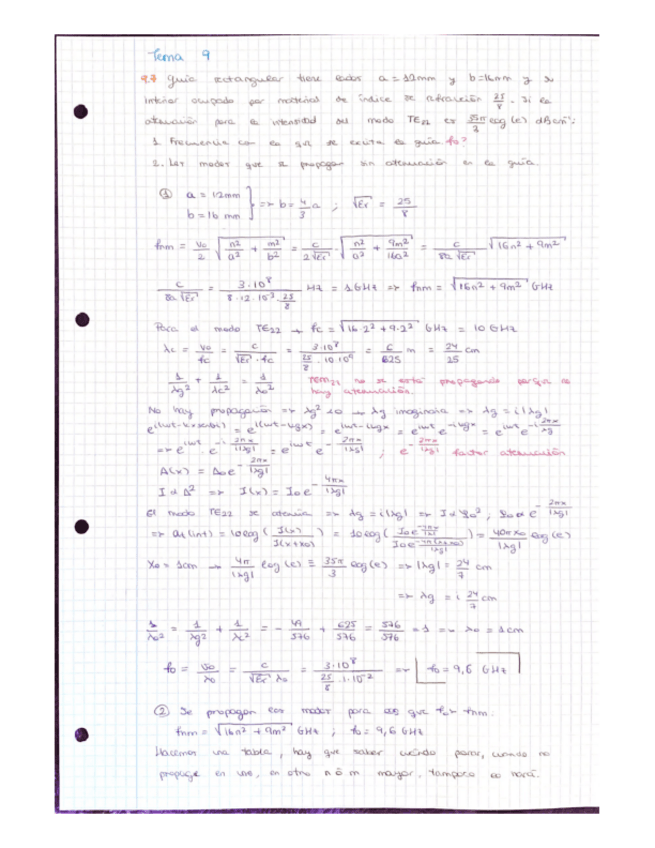 Tema 9
9.7 Guía rectangular tiene lados a = 12mm y b = 16mm y su
interior ocupado por material de índice de refracción 25/8. Si la
atenuación para la intensidad del modo TE₂₂ es 35π/3 log(e) dB cm⁻¹:
1. Frecuencia con la que se excita la guía f₀?
2. Los modos que se propagan sin atenuación en la guía.
① a = 12mm
b = 16 mm } => b = 4/3 a ; √εr = 25/8
fnm = v₀/2 √(n²/a² + m²/b²) = c/(2√εr) · √(n²/a² + 9m²/16a²) = c/(8a√εr) √(16n² + 9m²)
c/(8a√εr) = 3·10⁸/(8·12·10⁻³·25/8) Hz = 1GHz => fnm = √(16n² + 9m²) GHz
Para el modo TE₂₂ → fc = √(16·2² + 9·2²) GHz = 10 GHz
λc = v₀/fc = c/(√εr·fc) = 3·10⁸/(25/8·10·10⁹) = 6/625 m = 24/25 cm
1/λg² + 1/λc² = 1/λ₀² no se está propagando porque
hay atenuación.
No hay propagación => λg² < 0 → λg imaginaria => λg = i|λg|
factor atenuación
A(x) = A₀e^(-2πx/|λg|)
I α A² => I(x) = I₀e^(-4πx/|λg|)
El modo TE₂₂ se atenúa => λg = i|λg| =>
=> = 10log(I(x)/I(x+x₀)) = = 40πx₀/|λg| log(e)
x₀ = 1cm → 4π/|λg| log(e) = 35π/3 log(e) => |λg| = 24/7 cm
=> λg = i 24/7 cm
1/λ₀² = 1/λg² + 1/λc² = - 49/576 + 625/576 = 576/576 = 1 => λ₀ = 1cm
f₀ = v₀/λ₀ = c/(√εr λ₀) = 3·10⁸/(25/8·1·10⁻²) => f₀ = 9,6 GHz
② Se propagan los modos para los que f₀ > fnm.
fnm = √(16n² + 9m²) GHz ; f₀ = 9,6 GHz
Hacemos una tabla, hay que saber cuándo parar, cuando no
propague en uno, en otro n ó m mayor, tampoco lo hará.